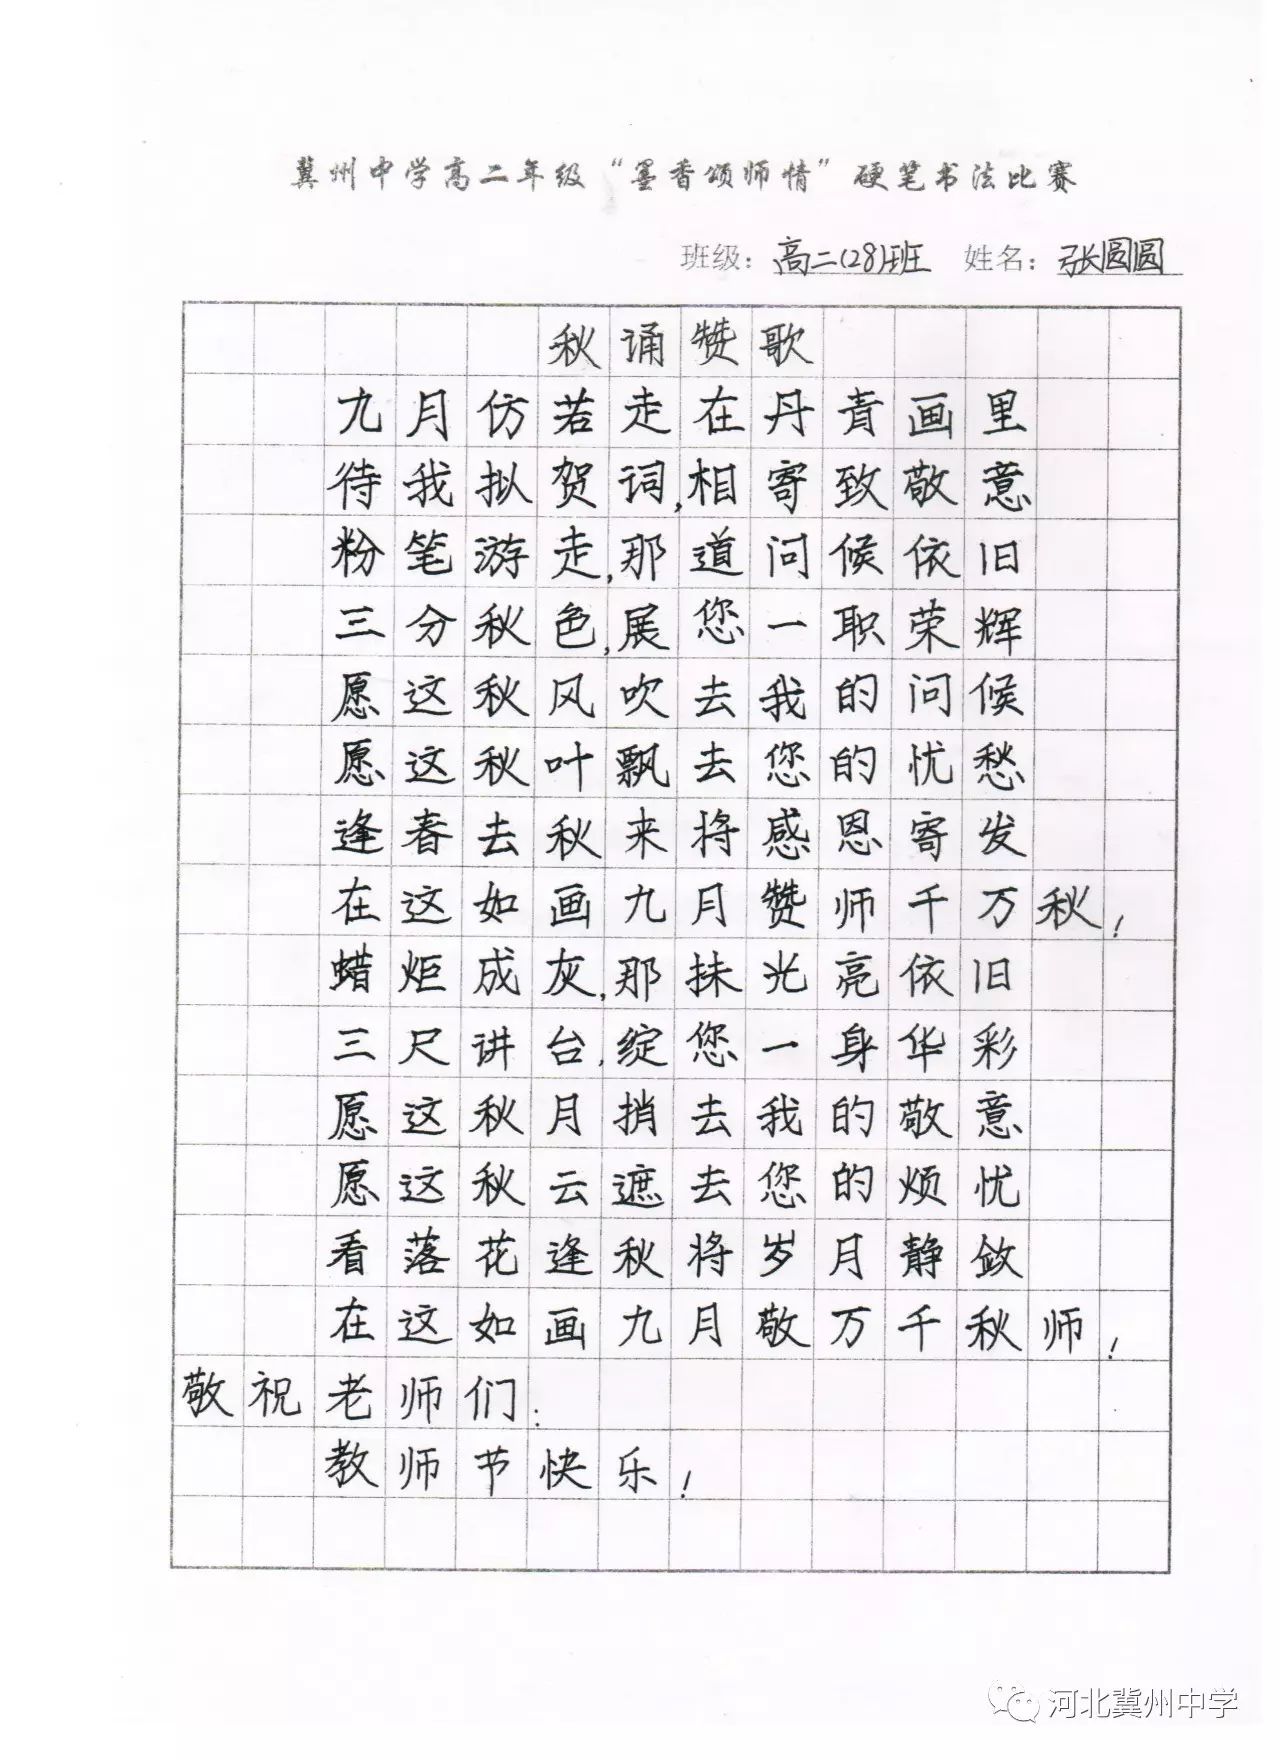 冀州中学高二年级“墨香颂师情”硬笔书法比赛
班级：高二(28)班 姓名：张圆圆
秋诵赞歌
九月仿若走在丹青画里
待我拟贺词,相寄致敬意
粉笔游走,那道问候依旧
三分秋色,展您一职荣辉
愿这秋风吹去我的问候
愿这秋叶飘去您的忧愁
逢春去秋来将感恩寄发
在这如画九月赞师千万秋!
蜡炬成灰,那抹光亮依旧
三尺讲台,绽您一身华彩
愿这秋月捎去我的敬意
愿这秋云遮去您的烦忧
看落花逢秋将岁月静敛
在这如画九月敬万千秋师!
敬祝老师们:
教师节快乐!
河北冀州中学